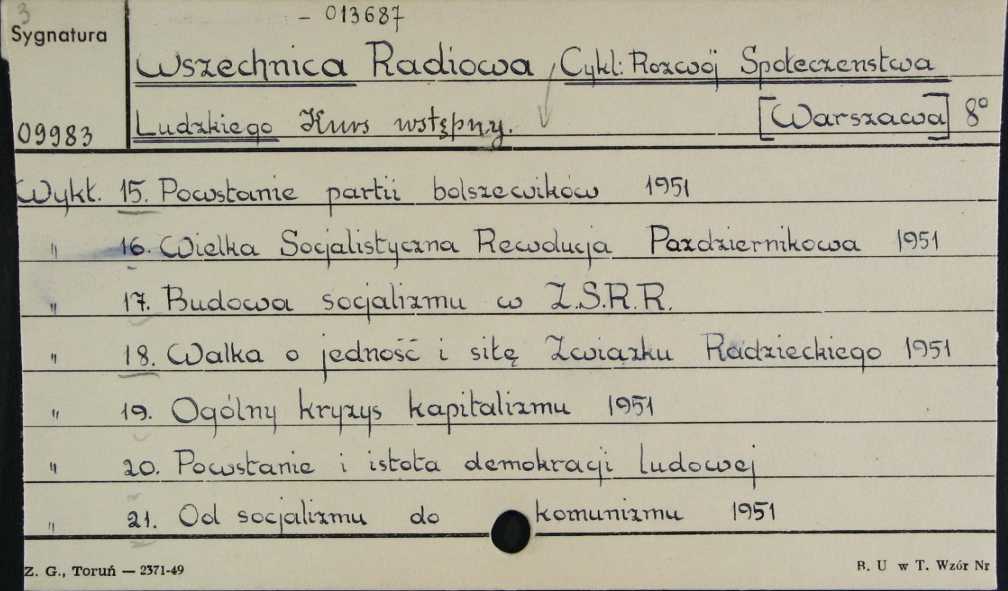 3
– 013687
Sygnatura
Wszechnica Radiowa Cykl: Rozwój Społeczeństwa
09983 Ludzkiego Kurs wstępny. [Warszawa] 8°
Wykł. 15. Powstanie partii bolszewików 1951
" 16. Wielka Socjalistyczna Rewolucja Październikowa 1951
" 17. Budowa socjalizmu w Z.S.R.R.
" 18. Walka o jedność i siłę Związku Radzieckiego 1951
" 19. Ogólny kryzys kapitalizmu 1951
" 20. Powstanie i istota demokracji ludowej
" 21. Od socjalizmu do komunizmu 1951
Z. G., Toruń — 2371-49 B. U w T. Wzór Nr